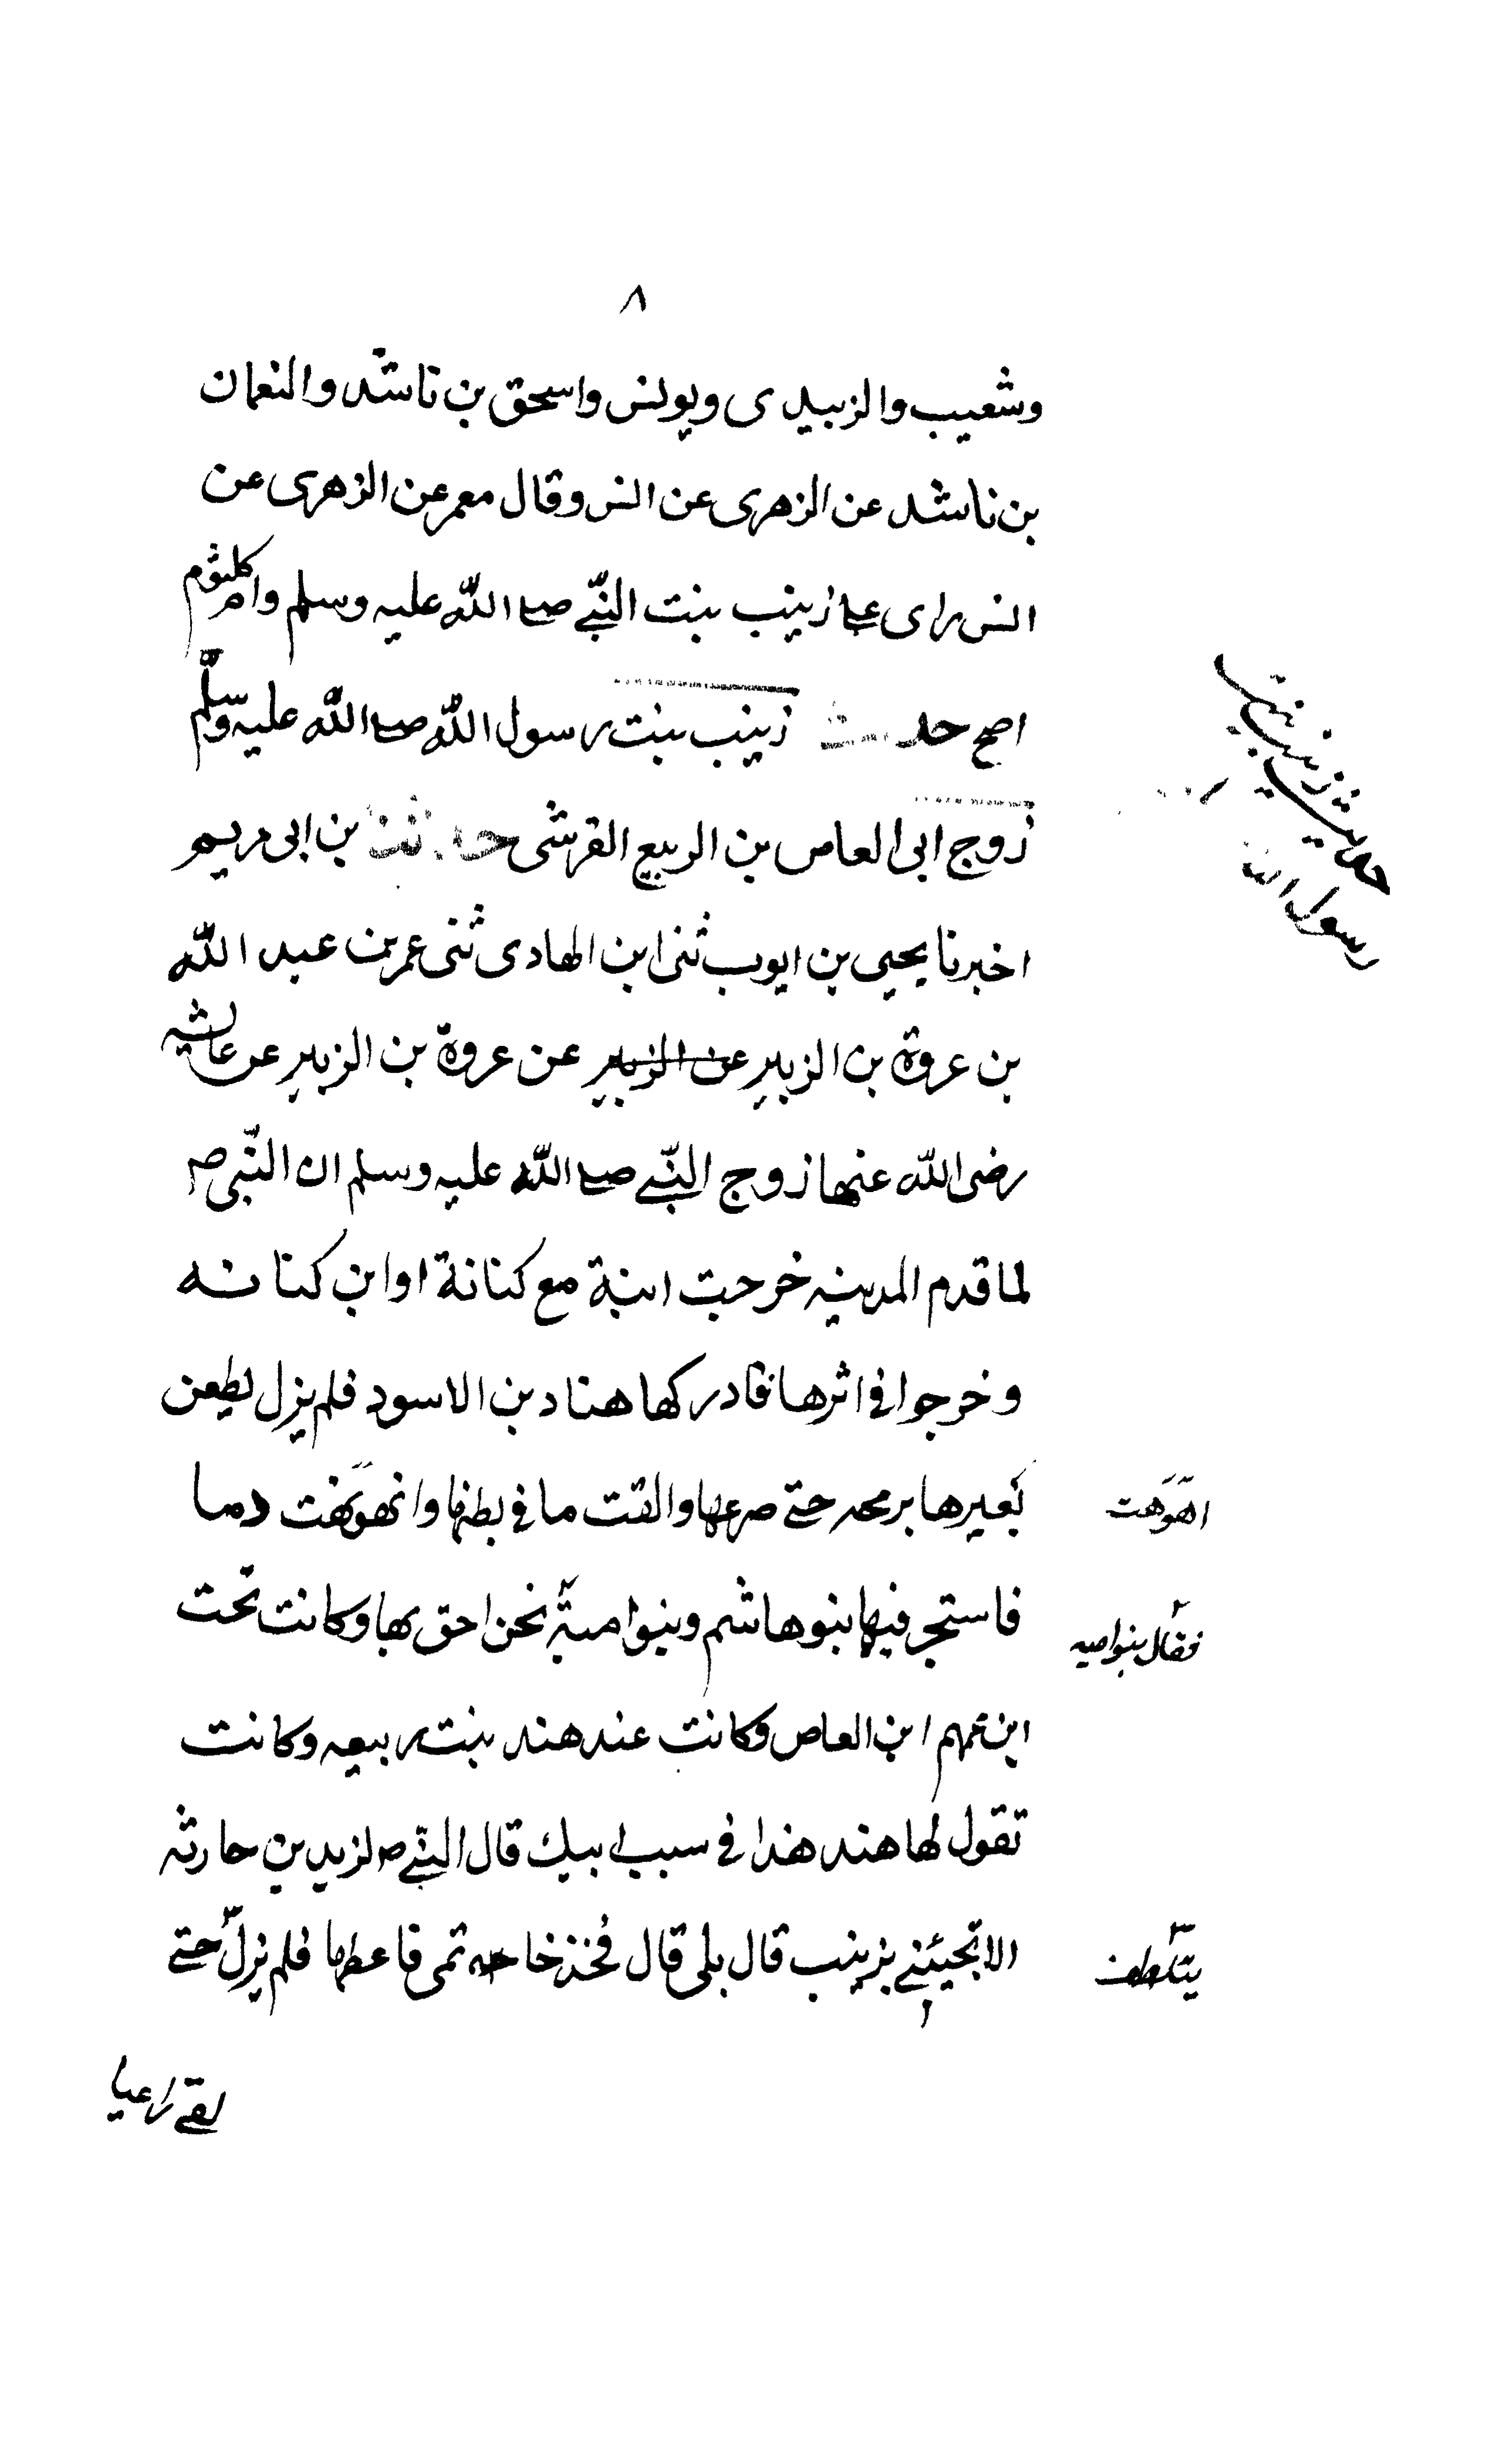 ٨
وشعيب والزبيدى ويونس واسحق بن ناشد والنعمان
بن ناشد عن الزهرى عن انس وقال معمر عن الزهرى عن
انس راى على زينب بنت النبى صلى الله عليه وسلم وام كلثوم
اصح حديث زينب بنت رسول الله صلى الله عليه وسلم
زوج ابى العاص بن الربيع القرشى بن ابى مريم
اخبرنا يحيى بن ايوب ثنى ابن الهادى ثنى عمر بن عبد الله
بن عروة بن الزبير عن الزبير عن عروة بن الزبير عن عائشه
رضى الله عنها زوج النبى صلى الله عليه وسلم ان النبى ص
لما قدم المدينه خرجت ابنة مع كنانة او ابن كنانه
وخرجوا فى اثرها فادركها هناد بن الاسود فلم يزل يطعن
بعيرها برمحه حتى صرعها والقت ما فى بطنها وانهوهت دما
فاستجر فيها بنو هاشم وبنو امية نحن احق بها وكانت تحت
ابن عمهم ابن العاص وكانت عند هند بنت ربيعه وكانت
تقول لها هند هذا فى سبب ابيك قال النبى ص لزيد بن حارثه
الا تجيئنى بزينب قال بلى قال فخذ خاتمى فاعطها فلم يزل حتى
لقى راعيا
حديث زينب بنت
رسول الله
اهوهت
فقال بنو اميه
يتلطف